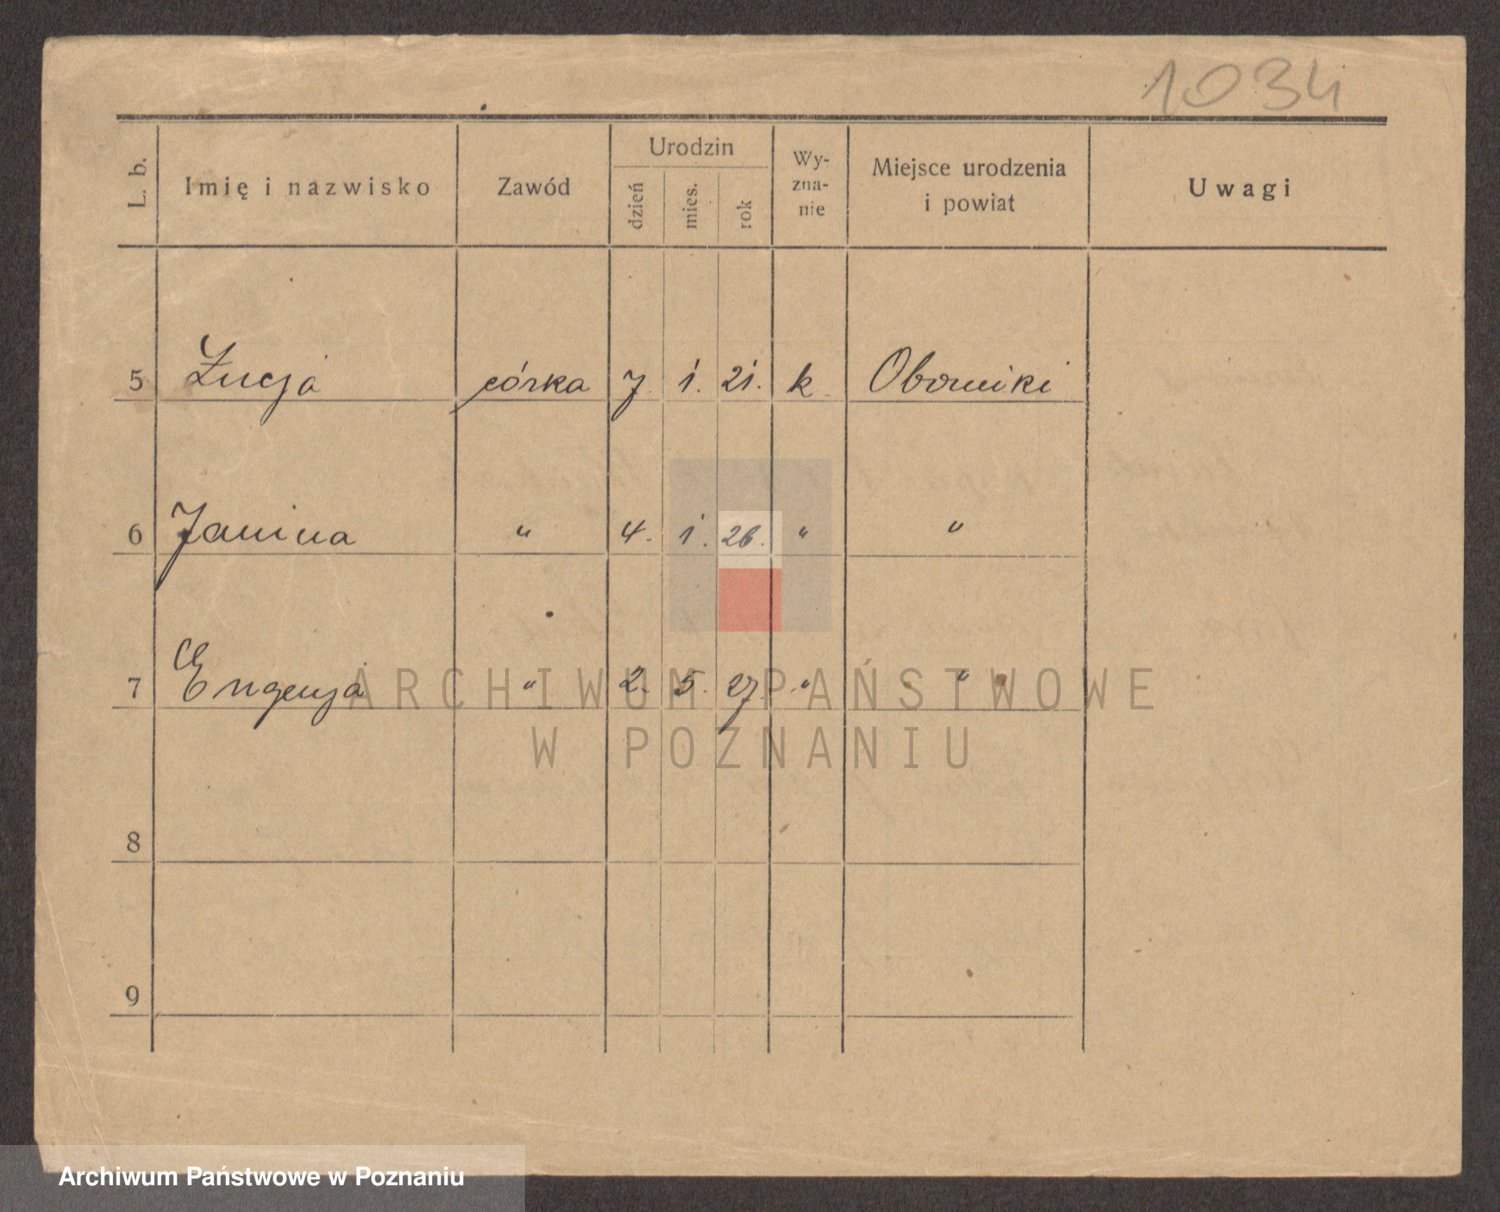 1034
L. b. Imię i nazwisko Zawód Urodzin dzień mies. rok Wy-zna-nie Miejsce urodzenia i powiat Uwagi
5 Łucja córka 7. 1. 21. k. Oborniki
6 Janina " 4. 1. 26. " "
7 Eugenja " 2. 5. 27. " "
ARCHIWUM PAŃSTWOWE
W POZNANIU
8
9
Archiwum Państwowe w Poznaniu